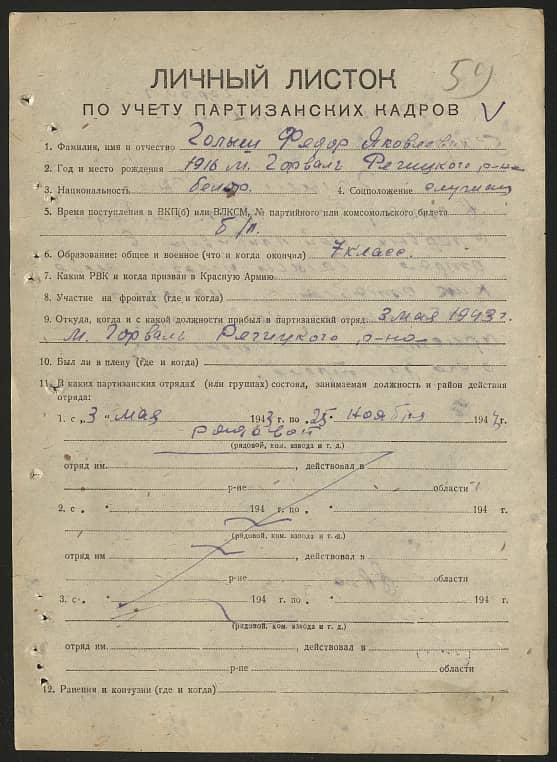 59
ЛИЧНЫЙ ЛИСТОК
ПО УЧЕТУ ПАРТИЗАНСКИХ КАДРОВ V
1. Фамилия, имя и отчество Голыш Федор Яковлевич
2. Год и место рождения 1916 м. Горваль Речицкого р-на
3. Национальность белор. 4. Соцположение служащ
5. Время поступления в ВКП(б) или ВЛКСМ, № партийного или комсомольского билета
б/п.
6. Образование: общее и военное (что и когда окончил) 7 класс.
7. Каким РВК и когда призван в Красную Армию
8. Участие на фронтах (где и когда)
9. Откуда, когда и с какой должности прибыл в партизанский отряд 3 мая 1943 г.
м. Горваль Речицкого р-на
10. Был ли в плену (где и когда)
11. В каких партизанских отрядах (или группах) состоял, занимаемая должность и район действия
отряда:
1. с „3 " мая 1943 г. по „25 " ноября 194 г.
рядовой
(рядовой, ком. взвода и т. д.)
отряд им. , действовал в
р-не области
2. с " 194 г. по " 194 г.
(рядовой, ком. взвода и т. д.)
отряд им , действовал в
р-не области
3. с " 194 г. по " 194 г.
(рядовой, ком. взвода и т. д.)
отряд им , действовал в
р-не области
12. Ранения и контузии (где и когда)